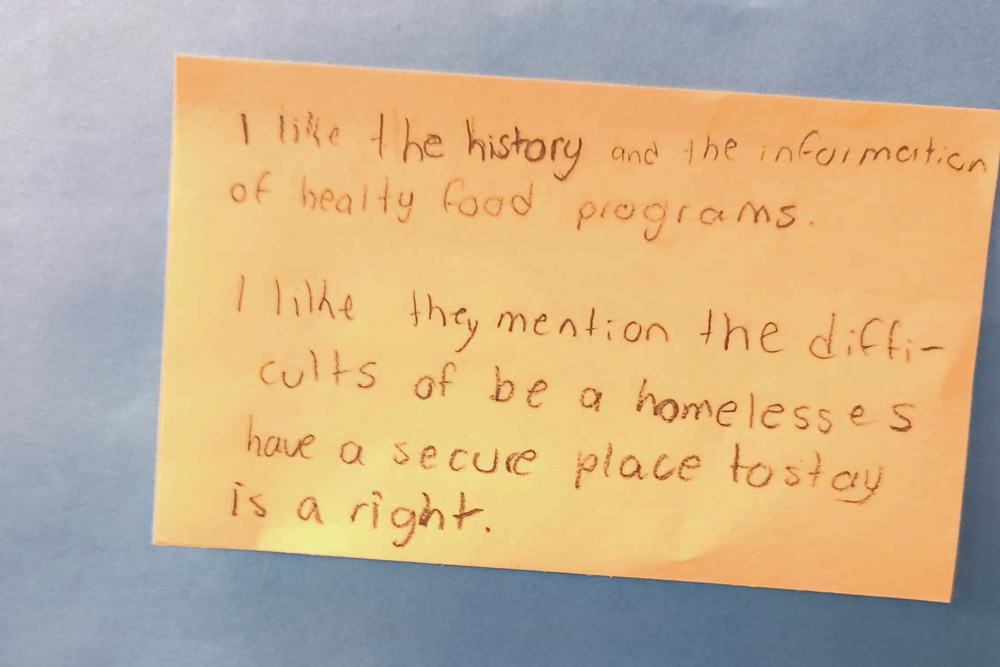 I like the history and the information
of healty food programs.
I lilke they mention the diffi-
cults of be a homelesses
have a secure place to stay
is a right.